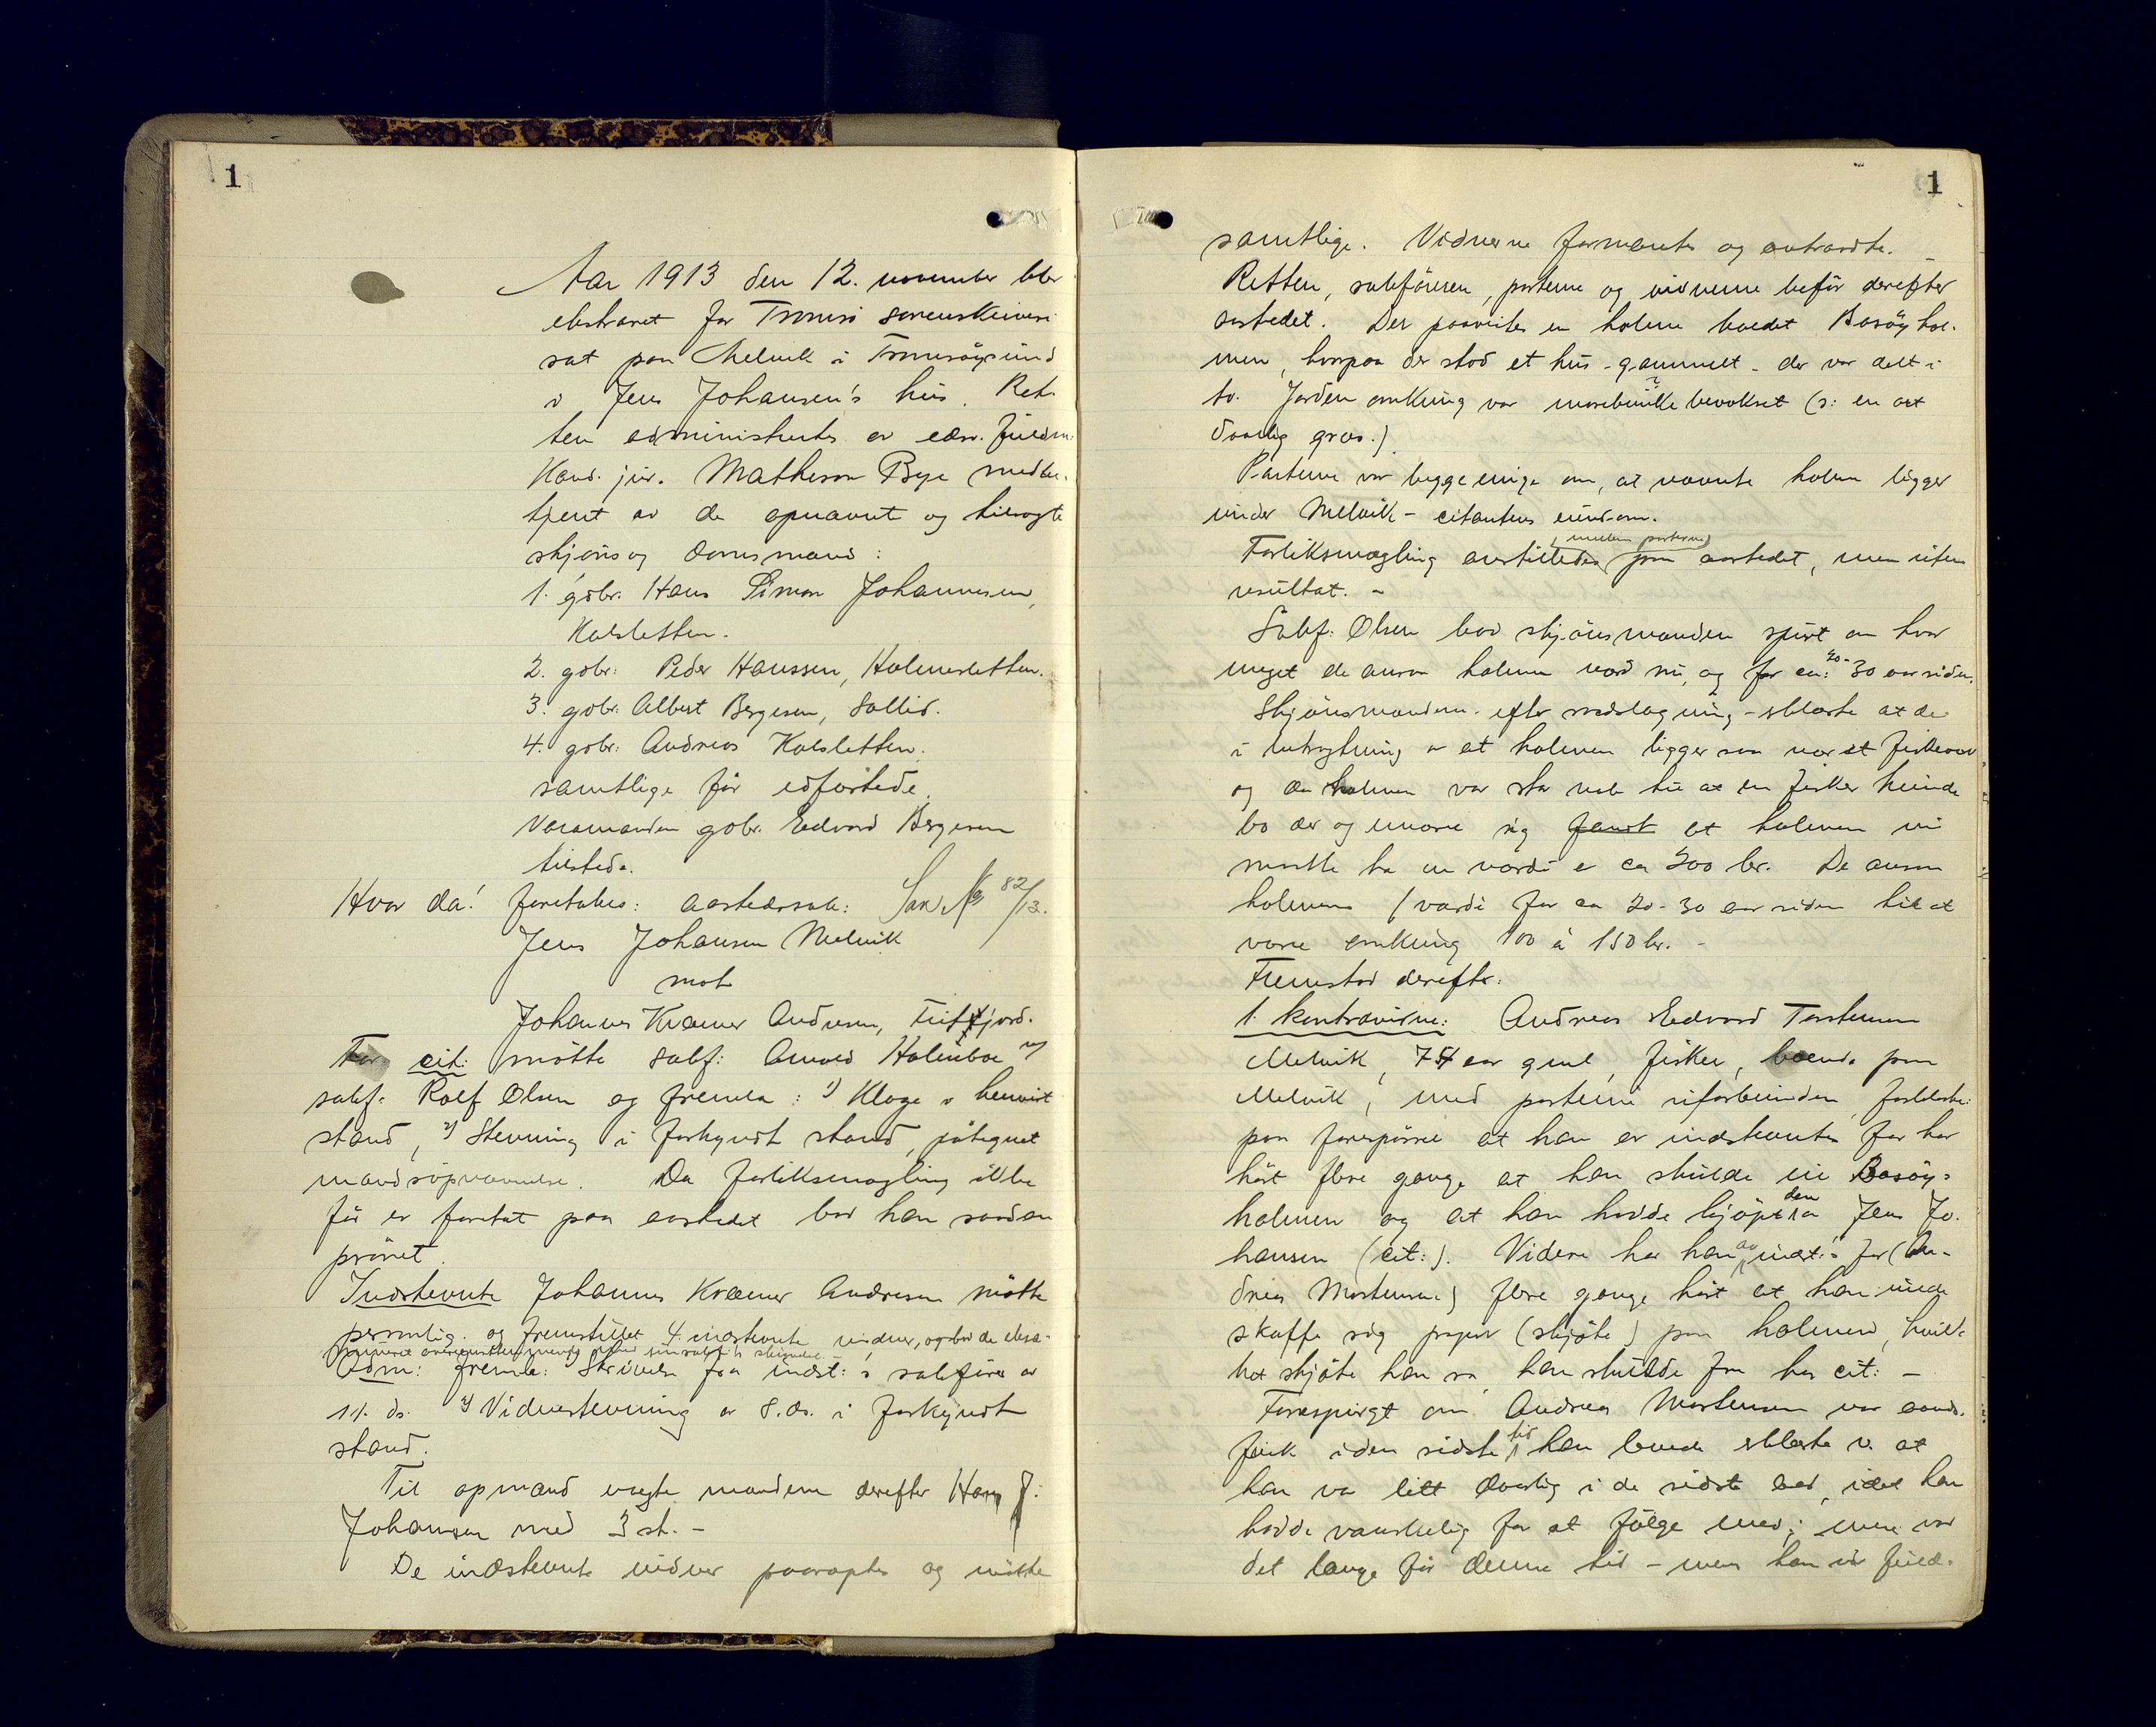 1
Aar 1913 den 12. november blev
ekstraret for Tromsö sorenskriveri
sat paa Melvik i Tromsöysund
i Jens Johansen's hus. Ret-
ten administreredes av edsv. fuldm.
Kand. jur. Matheson Bye medbe-
tjent av de opnævnt og tilsagte
skjöns og domsmænd:
1. gdbr. Hans Simon Johannesen,
Kalsletten.
2. gdbr: Peder Hanssen, Holmesletten.
3. gdbr: Albert Bergesen, Sollid.
4. gdbr: Andreas Kalsletten.
samtlige för edfæstede.
Varamanden gdbr. Edvard Bergesen
tilstede.
Hvor da! foretokes: aastedssak: Sak No 82/13.
Jens Johansen Melvik
mot
Johannes Kræmer Andresen, fjord.
For cit: mötte sakf: Arnold Holmboe v/
sakf. Rolf Olsen og fremla: 1) Klage i henvist
stand, 2) Stevning i forkyndt stand, påtegnet
mandsopnævnelse. Da forliksmægling ikke
för er foretat paa aastedet bad han saadan
prövet.
Indstevnte Johannes Kræmer Andresen mötte
personlig. og fremstillet 4 indstevnte vidner, og bad de eksa-
mineret overensstemmende med sin sakf:s skrivelse
Adm: fremla: Skrivelse fra indst:'s sakförer av
11. ds. 2) Vidnestevning av 8. ds. i forkyndt
stand.
Til opmand valgte mændene derefter Hans S:
Johansen med 3 st. -
De indstevnte vidner paaroptes og mötte
1
samtlige. Vidnerne formantes og avtraadte.
Retten, sakförerne, parterne og vidnerne befór derefter
aastedet. Der paavistes en holme kaldet Basöyhol-
men, hvorpaa der stod et hus - gammelt - der var delt i
to. Jorden omkring var bevokset (ɔ: en art
daarlig græs.)
Parterne var begge enige om, at nævnte holme ligger
under Melvik - citantens eiendom.
Forliksmægling anstilledes (mellem parterne) paa aastedet, men uten
resultat. -
Sakf: Olsen bad skjönsmændene spurt om hvor
meget de ansaa holmen værd nu, og for ca: 20- 30 aar siden.
Skjönsmændene - efter raadslagning - erklærte at de
i betragtning av at holmen ligger saa nær et fiskevær
og da holmen var stor nok til at en fisker kunde
bo der og ernære sig fandt at holmen nu
maatte ha en værdi av ca 200 kr. De ansaa
holmens værdi for ca 20-30 aar siden til at
være omkring 100 à 150 kr. -
Fremstod derefter:
1. kontravidne: Andreas Edvard Torstensen
Melvik, 74 aar gml, fisker, boende paa
Melvik, med parterne uforbunden, forklarte:
paa forespörsel at han av indstevntes far har
hört flere gange at han skulde eie Basöy-
holmen og at han hadde kjöpt den fra Jens Jo-
hansen (cit:). Videre har han av indst:'s far (An-
dreas Mortensen) flere gange hört at han vilde
skaffe sig papir (skjöte) paa holmen, hvil-
ket skjöte han sa, han skulde faa hos cit: -
Forespurgt om Andreas Mortensen var aands-
frisk i den sidste tid han levede erklærte v. at
han var litt daarlig i de sidste aar, idet han
hadde vanskelig for at fölge med; men var
det længe för denne tid - mens han var fuld-